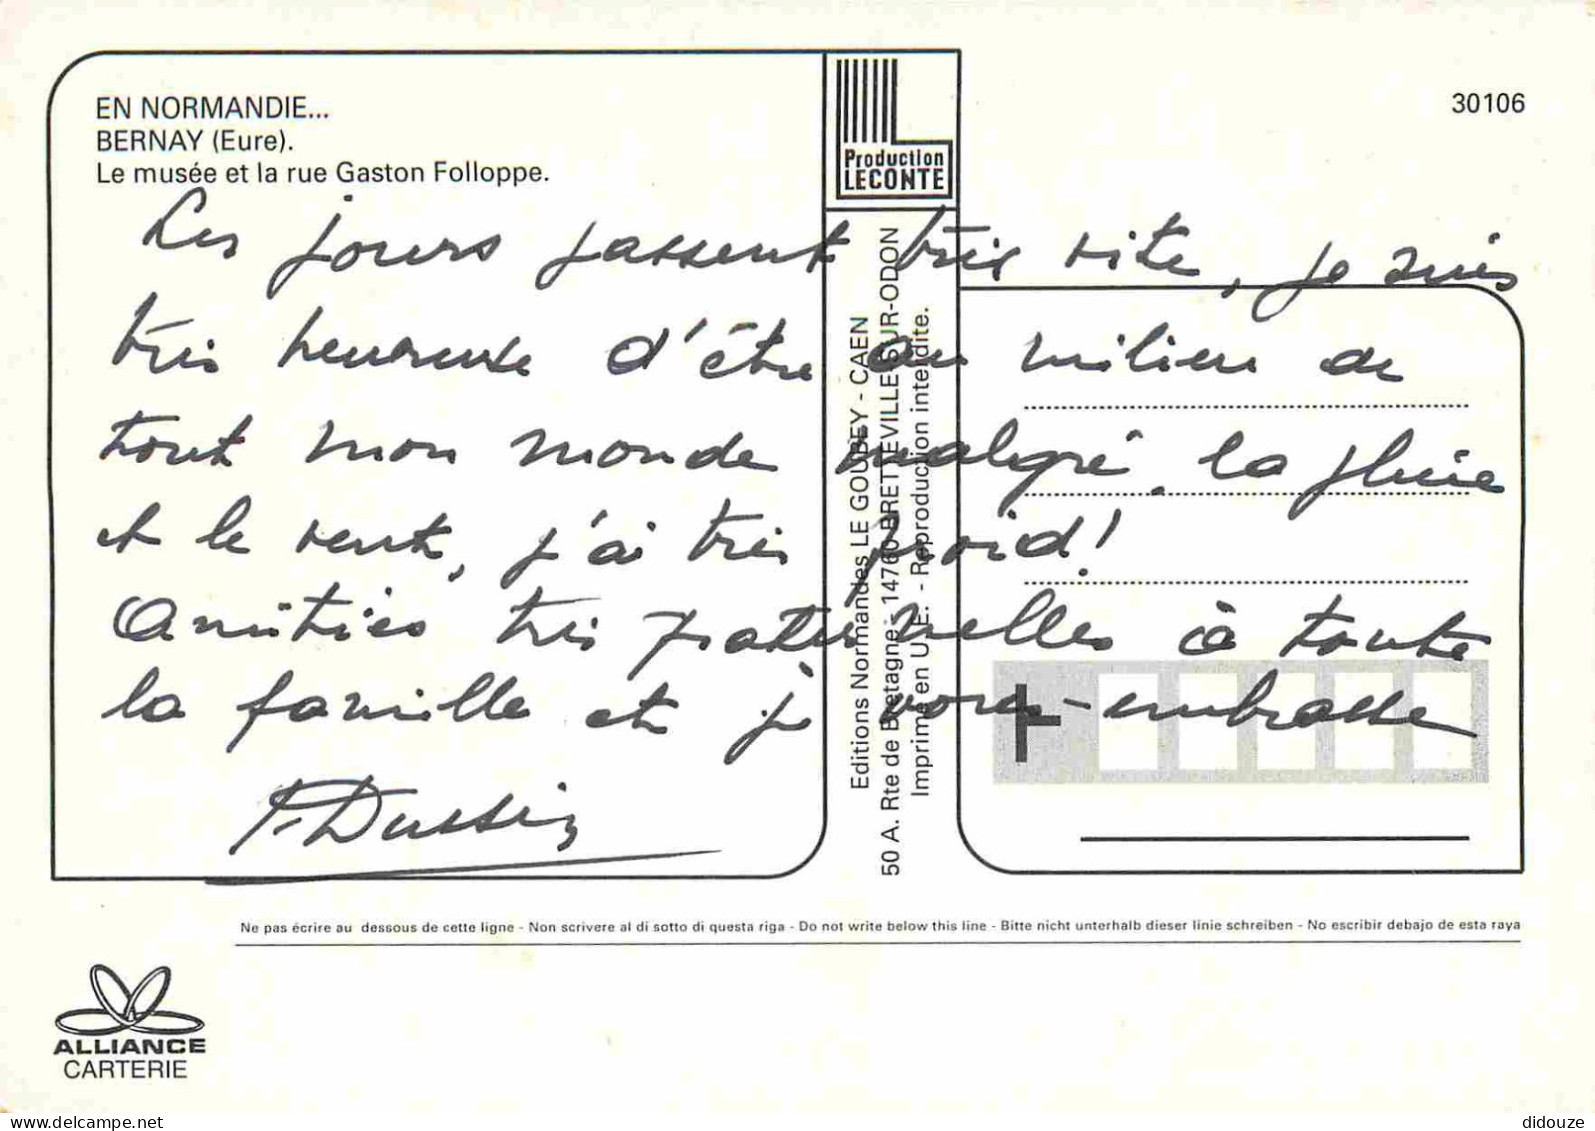 EN NORMANDIE...
BERNAY (Eure).
Le musée et la rue Gaston Folloppe.
30106
Production
LECONTE
Les jours passent très vite, je suis
très heureuse d'être au milieu de
tout mon monde malgré la pluie
et le vent, j'ai très froid!
Amitiés très fraternelles à toute
la famille et je vous embrasse
Editions Normandes LE GOUBEY - CAEN
50 A. Rte de Bretagne - 14760 BRETTEVILLE-SUR-ODON
Imprimé en U.E. - Reproduction interdite.
Ne pas écrire au dessous de cette ligne - Non scrivere al di sotto di questa riga - Do not write below this line - Bitte nicht unterhalb dieser linie schreiben - No escribir debajo de esta raya
ALLIANCE
CARTERIE
www.delcampe.net
didouze